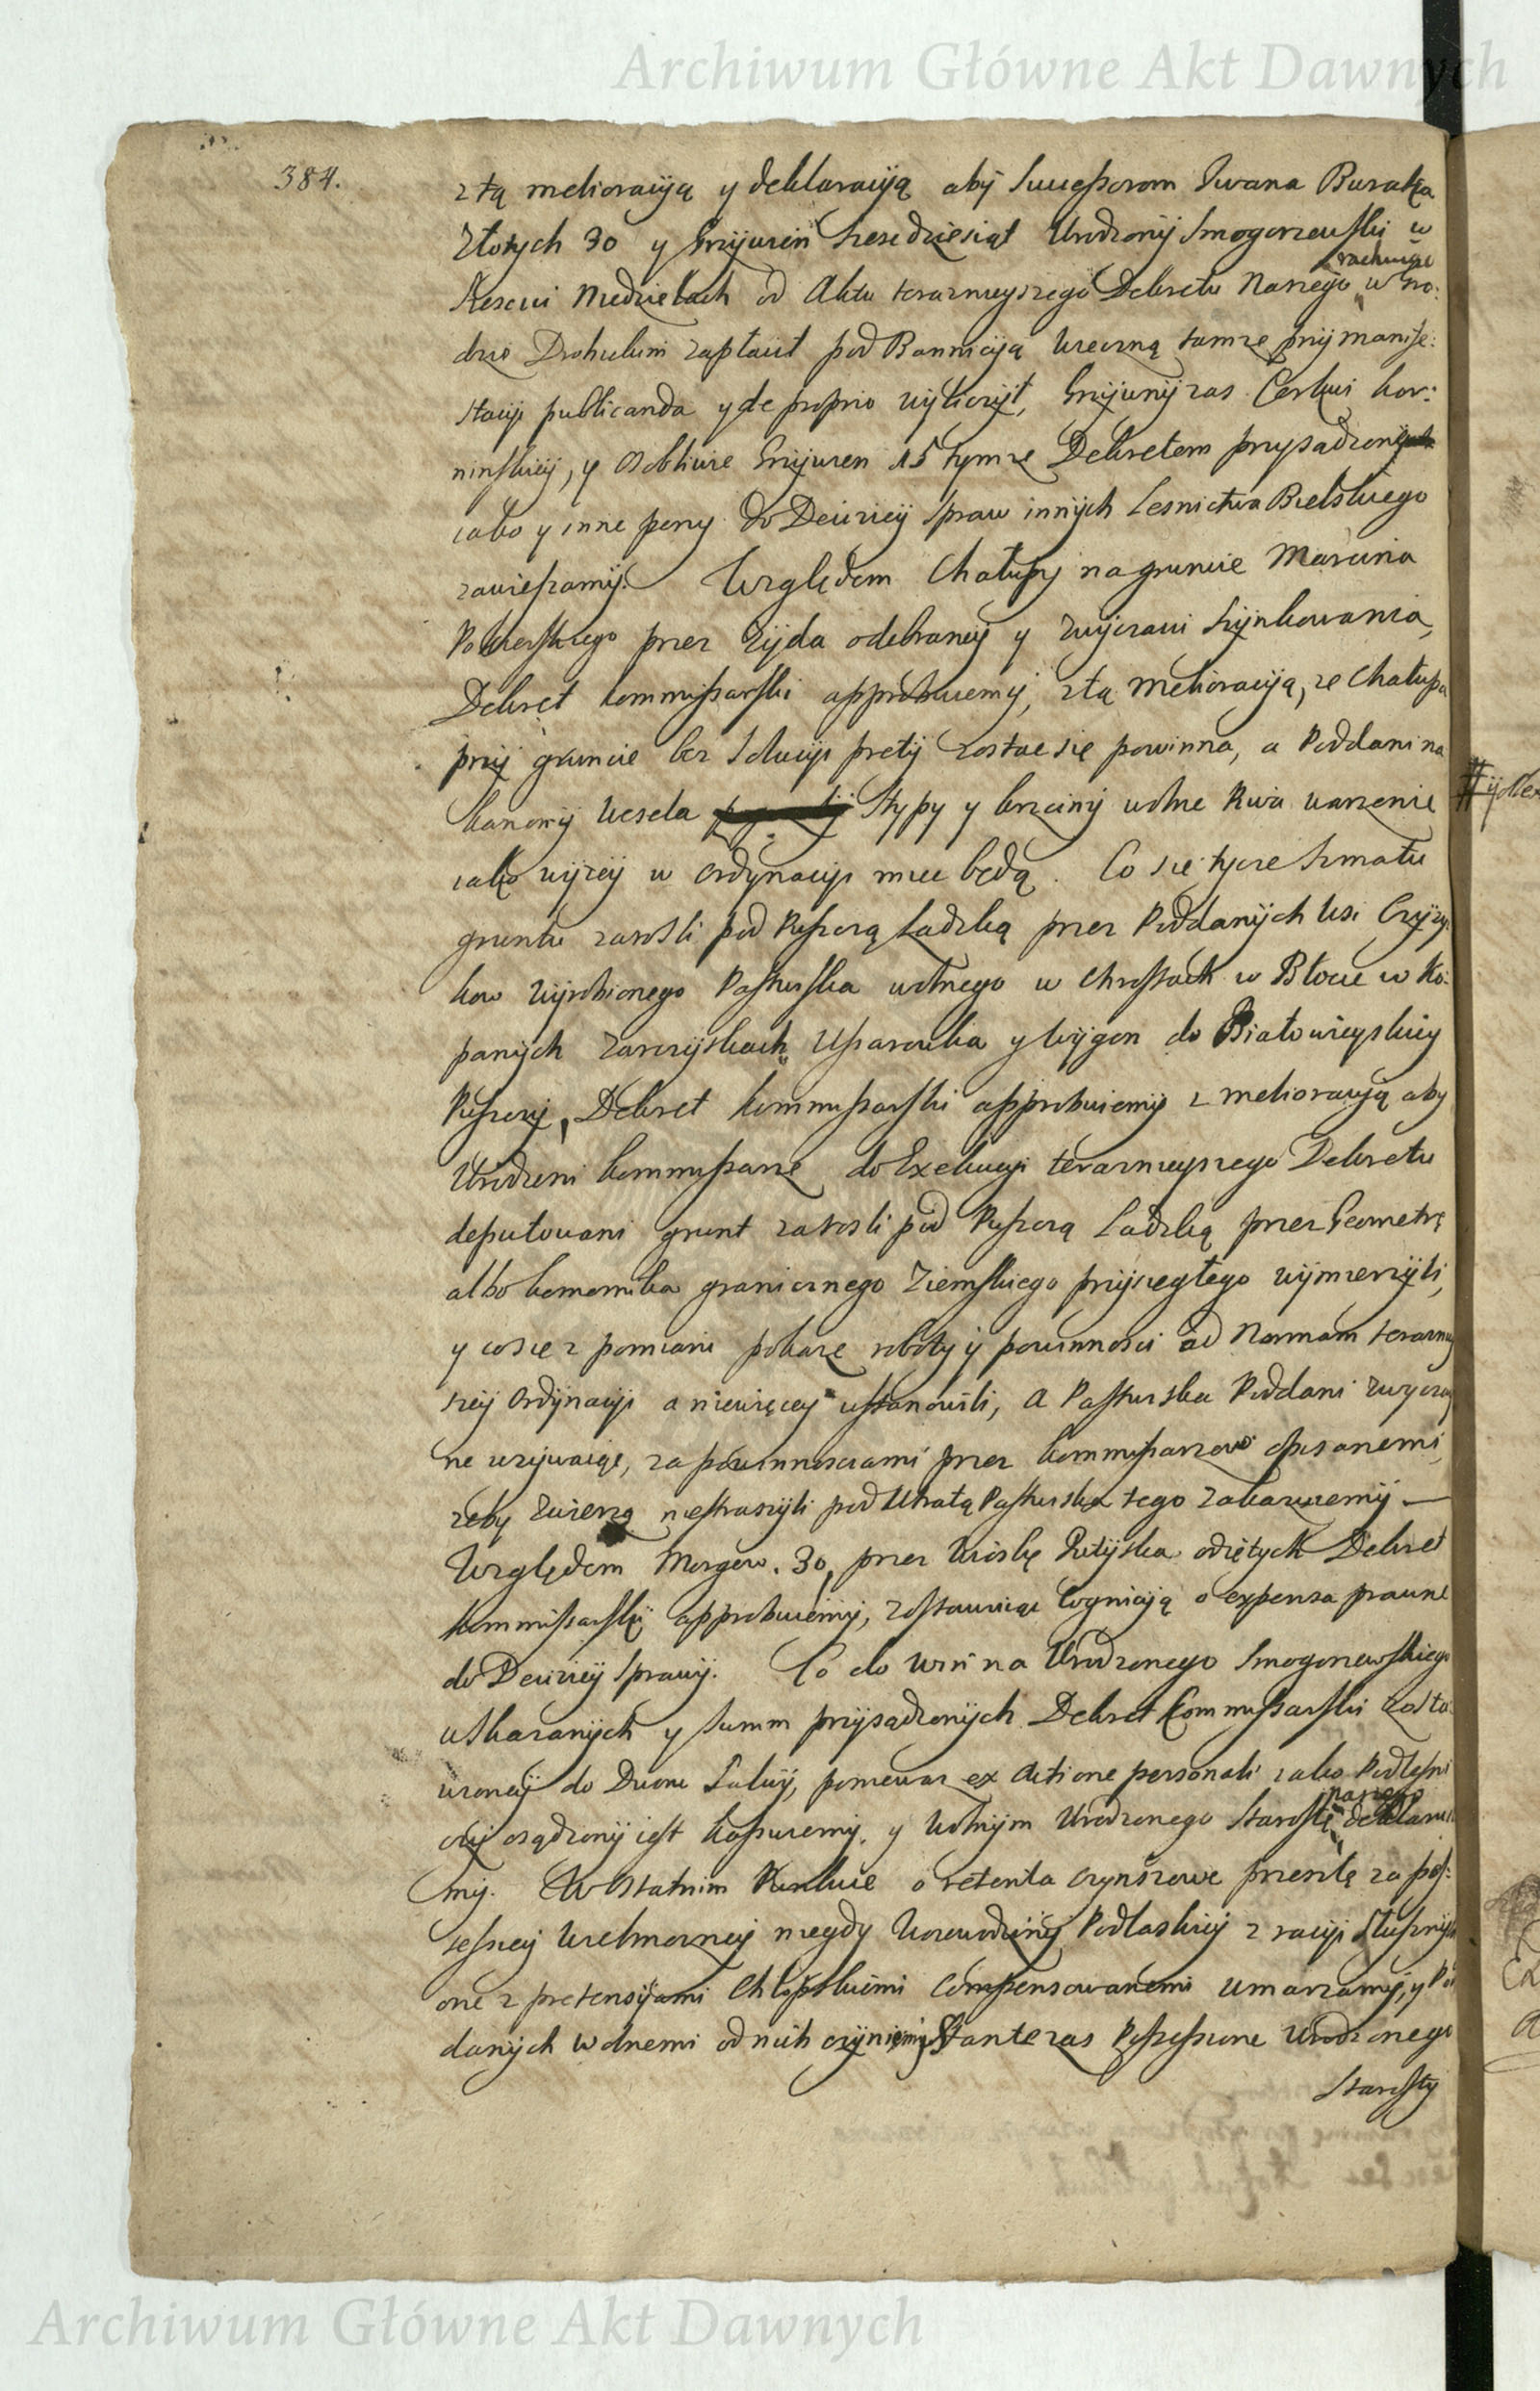 Archiwum Główne Akt Dawnych
384.
z tą melioracyią y deklaracyią aby Sukcessorom Iwana Buraka
Złotych 30 y Grzywien szescdziesiąt Urodzony Smogorzewski w
rachuiąc
szesciu Niedzielach od Aktu teraznieyszego Dekretu Naszego w Gro:
dzie Drohickim zapłacił pod Bannicyią wieczną tamze przy manife:
stacyi publicanda y de proprio wyliczył, Grzywny zas Cerkwi kor:
ninskiey, y osobliwie Grzywien 15 tymze Dekretem przysądzone
iako y inne peny do Decizyi Spraw innych Lesnictwa Bielskiego
zawieszamy. Względem Chałupy na gruncie Marcina
przez Zyda odebraney y zwyczaiu Szynkowania,
Dekret kommissarski approbuiemy, z tą melioracyią, ze Chałupa
przy gruncie bez solucyi prety zostac się powinna, a Poddani na
kanony Wesela Stypy y krzciny wolne Piwa warzenie
iako wyzey w ordynacyi miec będą. Co się tycze szmatu
gruntu zarosli pod Puszczą Ladzką przez Poddanych Wsi Czyzy:
kow wyrobionego Pastwiska wolnego w Chrostach w Błocie w Ko:
panych Zarzyskach y Wygon do Białowieyskiey
Puszczy, Dekret kommissarski approbuiemy z melioracyią aby
Urodzeni kommissarze do Exekucyi teraznieyszego Dekretu
deputowani grunt zarosli pod Puszczą Ladzką przez Geometrę
albo komornika granicznego Ziemskiego przysięgłego wymierzyli,
y co się z pomiaru pokaze roboty y powinnosci ad Normam teraznie
szey Ordynacyi a niewięcey ustanowili, a Pastwiska Poddani zwyczay
ne uzywaiąc, za powinnosciami przez kommissarzow opisanemi,
zeby zwierza niestraszyli pod Utratą Pastwiska tego zakazuiemy —
Względem Morgow. 30, przez Wioskę odiętych Dekret
kommissarski approbuiemy, zostawuiąc Cognicyią o expensa prawne
do Decizyi Sprawy. Co do Win na Urodzonego Smogorzewskiego
wskazanych y Summ przysądzonych Dekret Kommissarski zosta
wioney do Dworu Salwy, poniewaz ex Actione personali iako Podlesni
czy osądzony iest kassuiemy, y Wolnym Urodzonego Starostę
naszego
deklaruie
my. W Ostatnim Punkcie o retenta czynszowe przeszłę za pos:
sessyey Wielmozney niegdy Woiewodziny Podlaskiey z racyi słusznych
one z pretensyiami Chłopskiemi Compensowanemi Umarzamy, y Pod
danych Wolnemi od nich czyniemy Stante zas Possessione Urodzonego
Starosty
Archiwum Główne Akt Dawnych